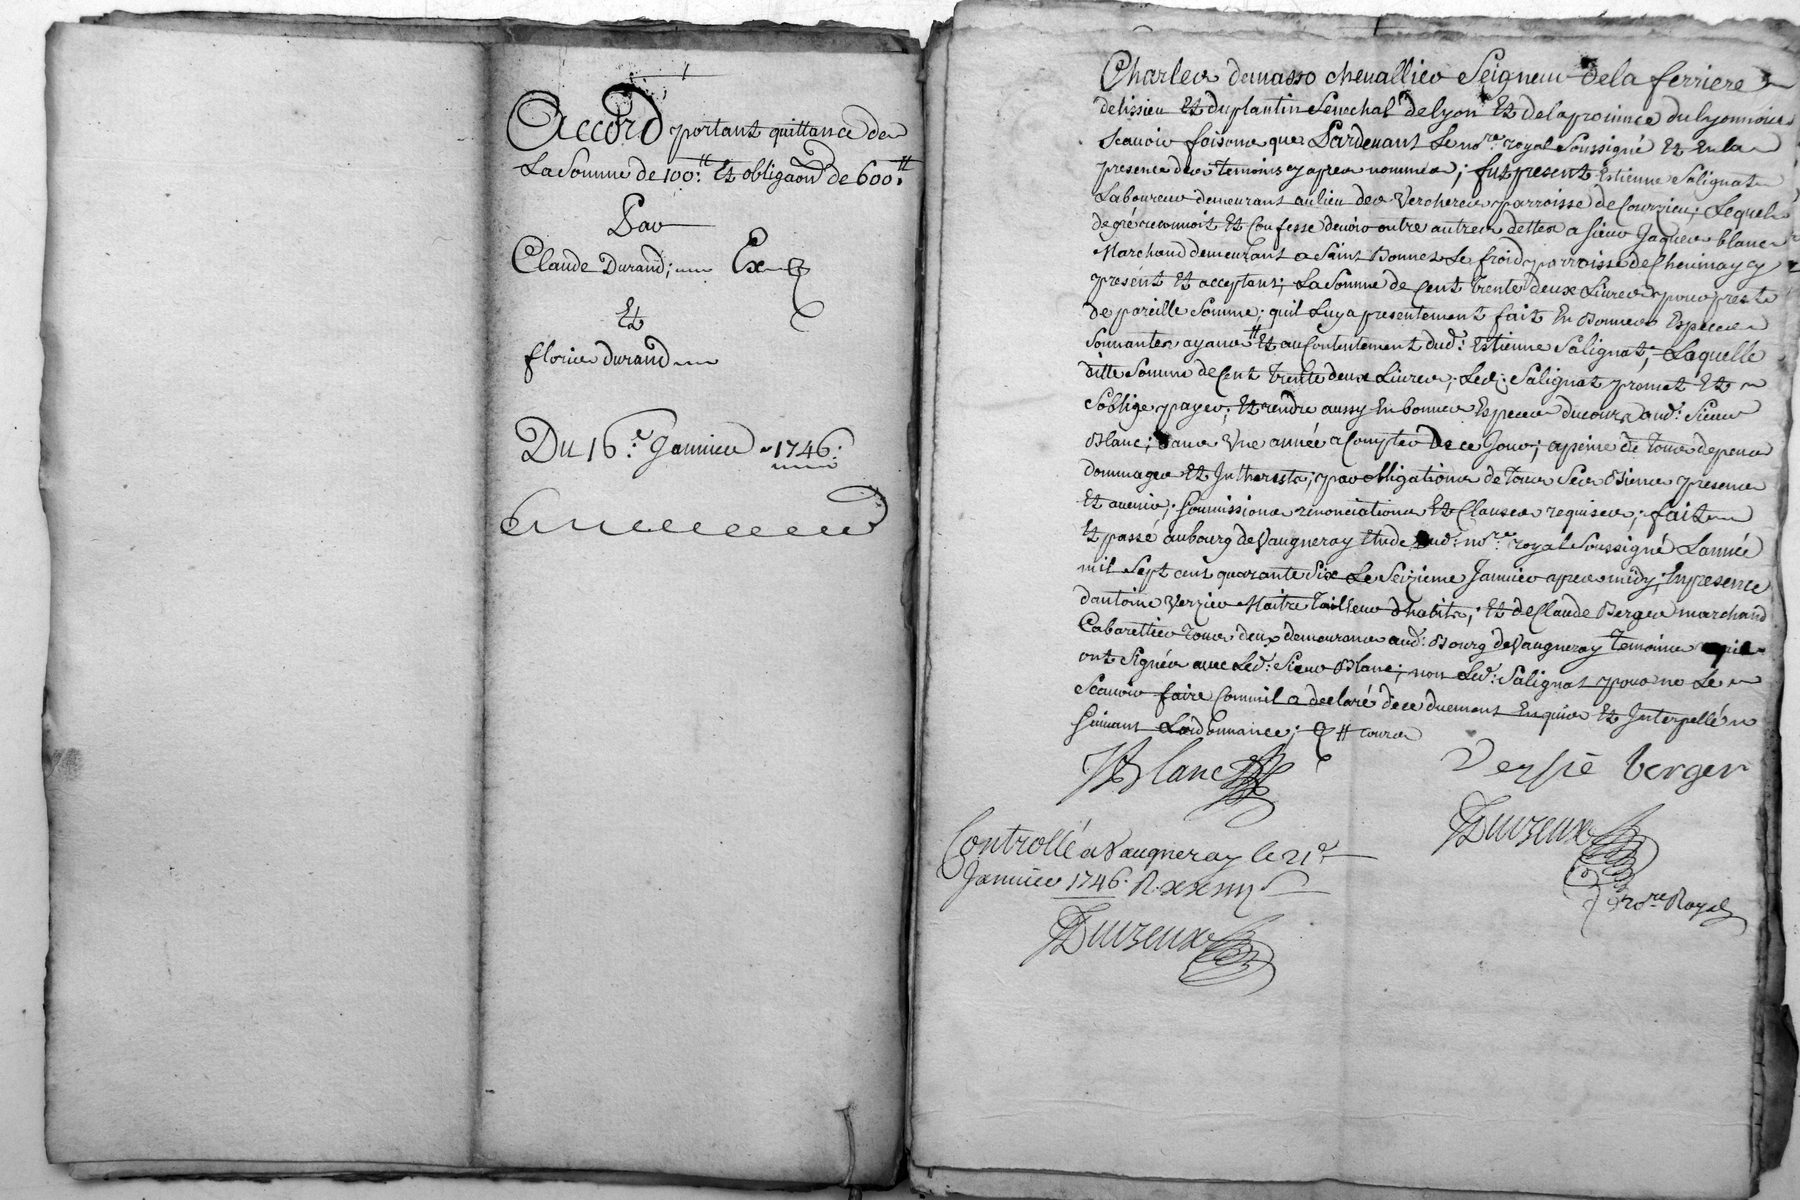 Accord portant quittance de
La Somme de 100.ᵗᵗ Et obliga͠on de 600.ᵗᵗ
Par
Claude Durand; Ex
Et
florie Durand
Du 16.ᵉ Janvier 1746.
Charles demasso chevallier Seigneur dela ferriere
delissieu Et duplantin Senechal delyon Et delaprovince dulyonnois
Scavoir faisons que Pardevant Le noʳᵉ royal Soussigné Et Enla
presence des temoins cy apres nommés; fut present Estienne Salignat
Laboureur demeurant aulieu des Vercheres parroisse de Courzieu; Lequel
degré reconnoit Et Confesse devoir outre autres dettes a Sieur Jaques blanc
Marchand demeurant a Saint Bonnet Le froid parroisse de Chevinay cy
présent Et acceptant; La Somme de Cent trente deux Livres pour prest
de pareille Somme; quil Luy a presentement fait En Bonnes Especes
Sonnantes ayans ᵗᵗ Et au Contentement dud: Estienne Salignat; Laquelle
ditte Somme de Cent trente deux Livres; Led: Salignat promet Et
Soblige payer; Et rendre aussy En bonnes Especes ducours aud: Sieur
Blanc; dans Vne année a Compter De ce Jour; apeine de tous depens
dommages Et Intherests; par obligations de tous Ses Biens presens
Et avenir; Soumissions renonciations Et Clauses requises; fait
Et passé aubourg deVaugneray Etude dud: noʳᵉ royal Soussigné Lannée
mil Sept cent quarante Six Le Seizieme Janvier apres midy; Enpresence
dantoine Verzier Maitre tailleur dhabits; Et deClaude Berger marchand
Cabarettier tous deux demeurans aud: Bourg deVaugneray temoins qui
ont Signés avec Led: Sieur Blanc; non Led: Salignat pour ne Le
Scavoir faire Comme il a declaré de ce duement Enquis Et Interpellé
Suivant Lordonnance; ᵗᵗ cours
Blanc
Versié berger
Controllé a Vaugneray le 21ᵉ
Janvier 1746. R.
noʳᵉ Royal